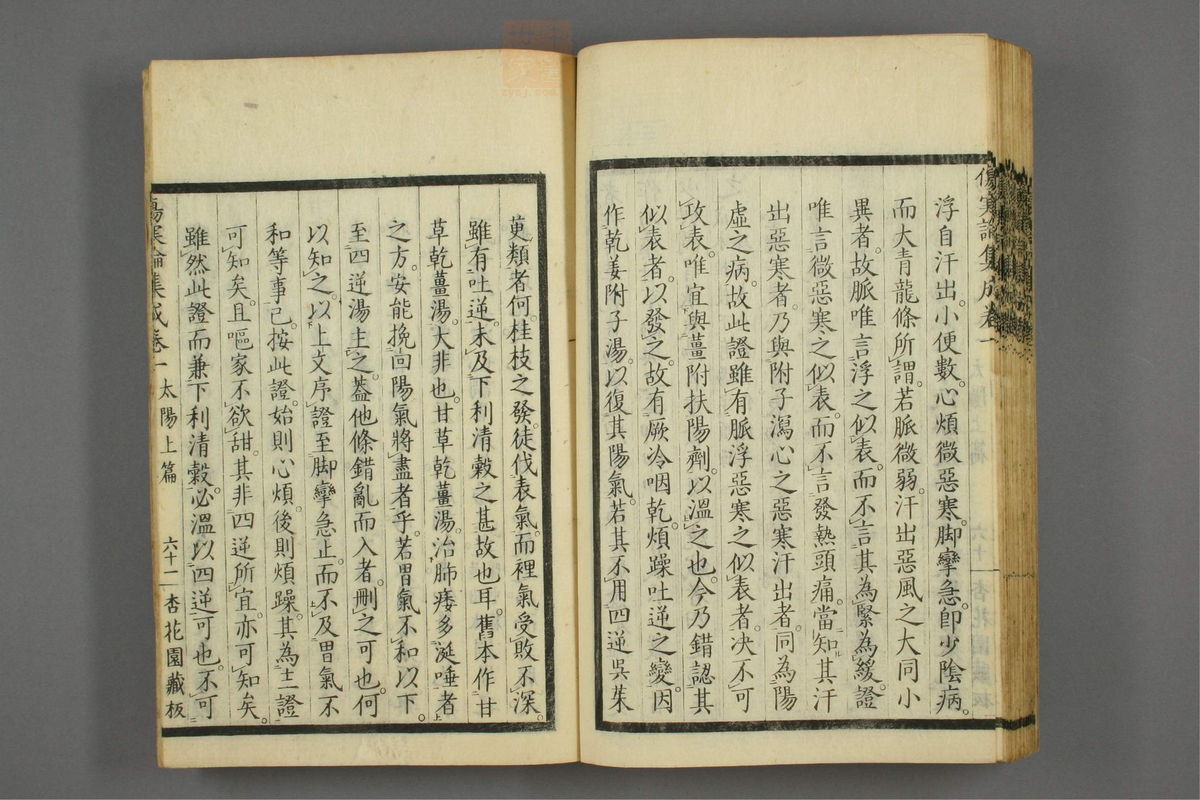 傷寒論集成卷一
浮自汗出。小便數。心煩微惡寒。脚攣急。卽少陰病。
而大青龍條所謂。若脈微弱。汗出惡風之大同小
異者。故脈唯言浮之似表。而不言其為緊為緩。證
唯言微惡寒之似表。而不言發熱頭痛。當知其汗
出惡寒者。乃與附子瀉心之惡寒汗出者。同為陽
虛之病。故此證雖有脈浮惡寒之似表者。决不可
攻表。唯宜與薑附扶陽劑。以溫之也。今乃錯認其
似表者。以發之。故有厥冷咽乾。煩躁吐逆之變。因
作乾姜附子湯。以復其陽氣。若其不用四逆吳茱
萸類者何。桂枝之發。徒伐表氣。而裡氣受敗不深。
雖有吐逆。未及下利清穀之甚故也耳。舊本作甘
草乾薑湯。大非也。甘草乾薑湯。治肺痿多涎唾者
之方。安能挽回陽氣將盡者乎。若胃氣不和以下。
至四逆湯主之。葢他條錯亂而入者。刪之可也。何
以知之。以上文序證至脚攣急止。而不及胃氣不
和等事已。按此證。始則心煩。後則煩躁。其為二證
可知矣。且嘔家不欲甜。其非四逆所宜。亦可知矣。
雖然此證而兼下利清穀。必溫以四逆可也。不可
傷寒論集成卷一 太陽上篇 六十一 杏花園藏板